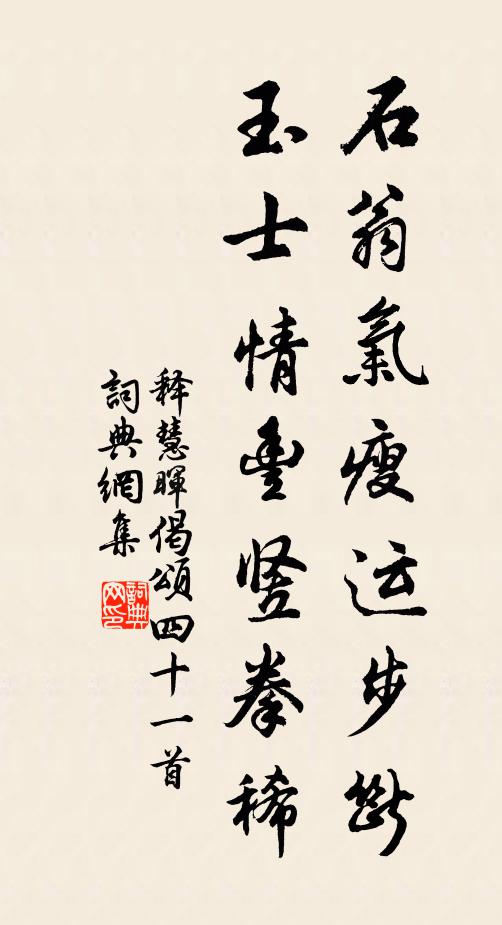 石翁氣瘦运步斷
玉士情豊竖拳稀
释慧暉偈頌四十一首
詞典網集
詞典网印